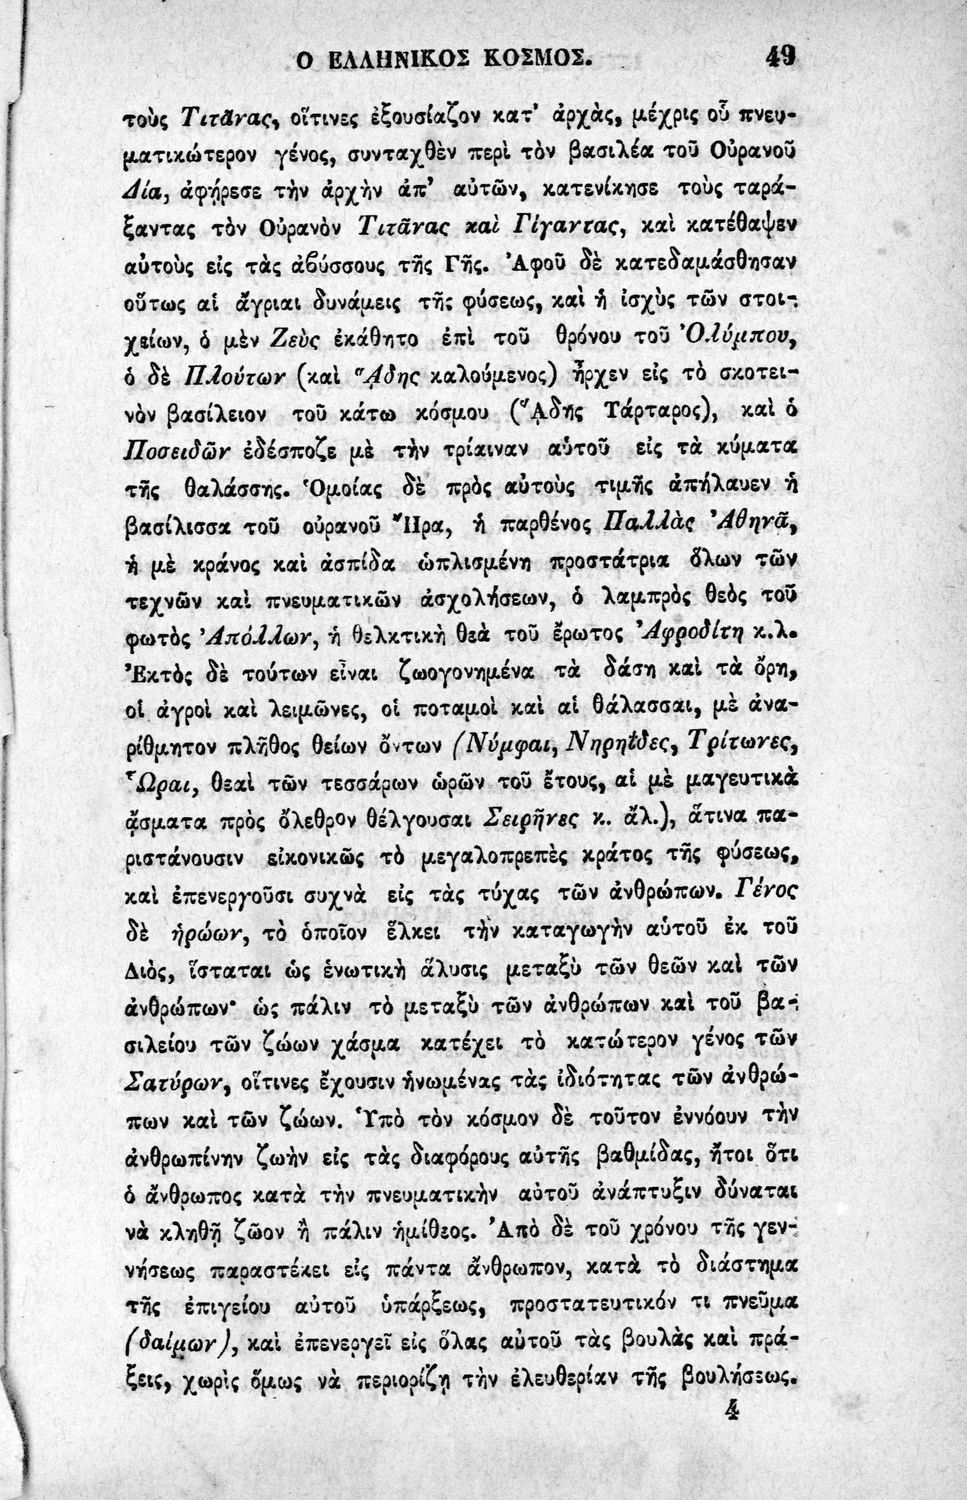 Ο ΕΛΛΗΝΙΚΟΣ ΚΟΣΜΟΣ. 49
τοὺς Τιτᾶνας, οἵτινες ἐξουσίαζον κατ' ἀρχὰς, μέχρις οὗ πνευ-
ματικώτερον γένος, συνταχθὲν περὶ τὸν βασιλέα τοῦ Οὐρανοῦ
Δία, ἀφῄρεσε τὴν ἀρχὴν ἀπ' αὐτῶν, κατενίκησε τοὺς ταρά-
ξαντας τὸν Οὐρανὸν Τιτᾶνας καὶ Γίγαντας, καὶ κατέθαψεν
αὐτοὺς εἰς τὰς ἀβύσσους τῆς Γῆς. Ἀφοῦ δὲ κατεδαμάσθησαν
οὕτως αἱ ἄγριαι δυνάμεις τῆς φύσεως, καὶ ἡ ἰσχὺς τῶν στοι-
χείων, ὁ μὲν Ζεὺς ἐκάθητο ἐπὶ τοῦ θρόνου τοῦ Ὀλύμπου,
ὁ δὲ Πλούτων (καὶ ᾍδης καλούμενος) ἦρχεν εἰς τὸ σκοτει-
νὸν βασίλειον τοῦ κάτω κόσμου (ᾍδης Τάρταρος), καὶ ὁ
Ποσειδῶν ἐδέσποζε μὲ τὴν τρίαιναν αὑτοῦ εἰς τὰ κύματα
τῆς θαλάσσης. Ὁμοίας δὲ πρὸς αὐτοὺς τιμῆς ἀπήλαυεν ἡ
βασίλισσα τοῦ οὐρανοῦ Ἥρα, ἡ παρθένος Παλλὰς Ἀθηνᾶ,
ἡ μὲ κράνος καὶ ἀσπίδα ὡπλισμένη προστάτρια ὅλων τῶν
τεχνῶν καὶ πνευματικῶν ἀσχολήσεων, ὁ λαμπρὸς θεὸς τοῦ
φωτὸς Ἀπόλλων, ἡ θελκτικὴ θεὰ τοῦ ἔρωτος Ἀφροδίτη κ.λ.
Ἐκτὸς δὲ τούτων εἶναι ζωογονημένα τὰ δάση καὶ τὰ ὄρη,
οἱ ἀγροὶ καὶ λειμῶνες, οἱ ποταμοὶ καὶ αἱ θάλασσαι, μὲ ἀνα-
ρίθμητον πλῆθος θείων ὄντων (Νύμφαι, Νηρηΐδες, Τρίτωνες,
Ὧραι, θεαὶ τῶν τεσσάρων ὡρῶν τοῦ ἔτους, αἱ μὲ μαγευτικὰ
ᾄσματα πρὸς ὄλεθρον θέλγουσαι Σειρῆνες κ. ἄλ.), ἅτινα πα-
ριστάνουσιν εἰκονικῶς τὸ μεγαλοπρεπὲς κράτος τῆς φύσεως,
καὶ ἐπενεργοῦσι συχνὰ εἰς τὰς τύχας τῶν ἀνθρώπων. Γένος
δὲ ἡρώων, τὸ ὁποῖον ἕλκει τὴν καταγωγὴν αὑτοῦ ἐκ τοῦ
Διὸς, ἵσταται ὡς ἑνωτικὴ ἅλυσις μεταξὺ τῶν θεῶν καὶ τῶν
ἀνθρώπων· ὡς πάλιν τὸ μεταξὺ τῶν ἀνθρώπων καὶ τοῦ βα-
σιλείου τῶν ζώων χάσμα κατέχει τὸ κατώτερον γένος τῶν
Σατύρων, οἵτινες ἔχουσιν ἡνωμένας τὰς ἰδιότητας τῶν ἀνθρώ-
πων καὶ τῶν ζώων. Ὑπὸ τὸν κόσμον δὲ τοῦτον ἐννόουν τὴν
ἀνθρωπίνην ζωὴν εἰς τὰς διαφόρους αὐτῆς βαθμίδας, ἤτοι ὅτι
ὁ ἄνθρωπος κατὰ τὴν πνευματικὴν αὐτοῦ ἀνάπτυξιν δύναται
νὰ κληθῇ ζῶον ἢ πάλιν ἡμίθεος. Ἀπὸ δὲ τοῦ χρόνου τῆς γεν-
νήσεως παραστέκει εἰς πάντα ἄνθρωπον, κατὰ τὸ διάστημα
τῆς ἐπιγείου αὐτοῦ ὑπάρξεως, προστατευτικόν τι πνεῦμα
(δαίμων), καὶ ἐπενεργεῖ εἰς ὅλας αὐτοῦ τὰς βουλὰς καὶ πρά-
ξεις, χωρὶς ὅμως νὰ περιορίζῃ τὴν ἐλευθερίαν τῆς βουλήσεως.
4